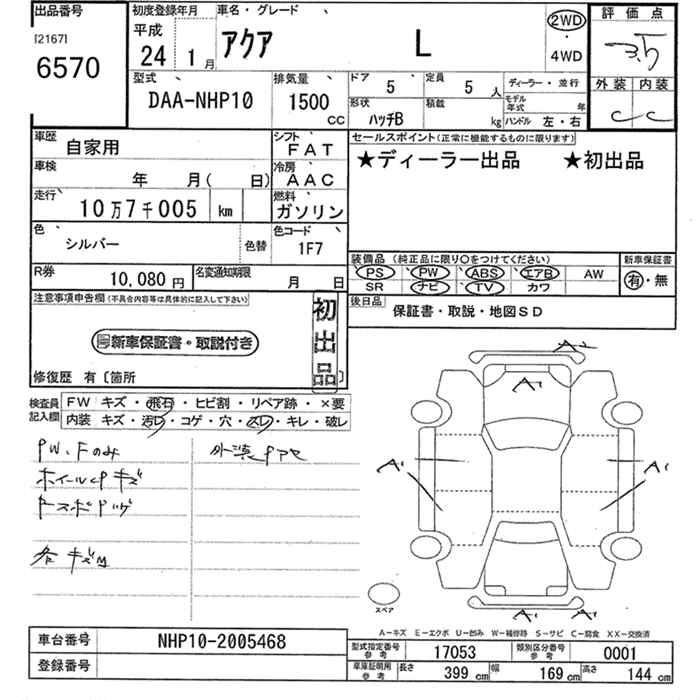 出品番号
[2167]
6570
初度登録年月
平成
24 1月
車名・グレード
アクア L
2WD
・
4WD
評価点
3.5
外装 内装
C C
型式
DAA-NHP10
排気量
1500
CC
ドア
5
定員
5人
形状
ハッチB
積載
kg
ディーラー・並行
モデル年式 年
ハンドル 左・右
車歴 自家用
シフト FAT
車検 年 月( 日)
冷房 AAC
走行 10万7千005 km
燃料 ガソリン
色 シルバー 色替
色コード 1F7
R券 10,080円
名変通知期限 月 日
セールスポイント(正常に機能するものに限ります)
★ディーラー出品 ★初出品
装備品(純正品に限り○をつけてください)
PS PW ABS エアB AW
SR ナビ TV カワ
新車保証書
有・無
後日品 保証書・取説・地図SD
注意事項申告欄(不具合内容等は具体的に記入して下さい)
新車保証書・取説付き
初出品
修復歴 有〔箇所 〕
検査員記入欄
FW キズ・飛石・ヒビ割・リペア跡・×要
内装 キズ・汚レ・コゲ・穴・スレ・キレ・破レ
PW.Fのみ
各キズ
A2
A1
A1
A1
A1
スペア
A-キズ E-エクボ U-凹み W-補修跡 S-サビ C-腐食 XX-交換済
車台番号 NHP10-2005468
登録番号
型式指定番号 参考 17053
類別区分番号 参考 0001
車庫証明用 参考 長さ 399cm 幅 169cm 高さ 144cm